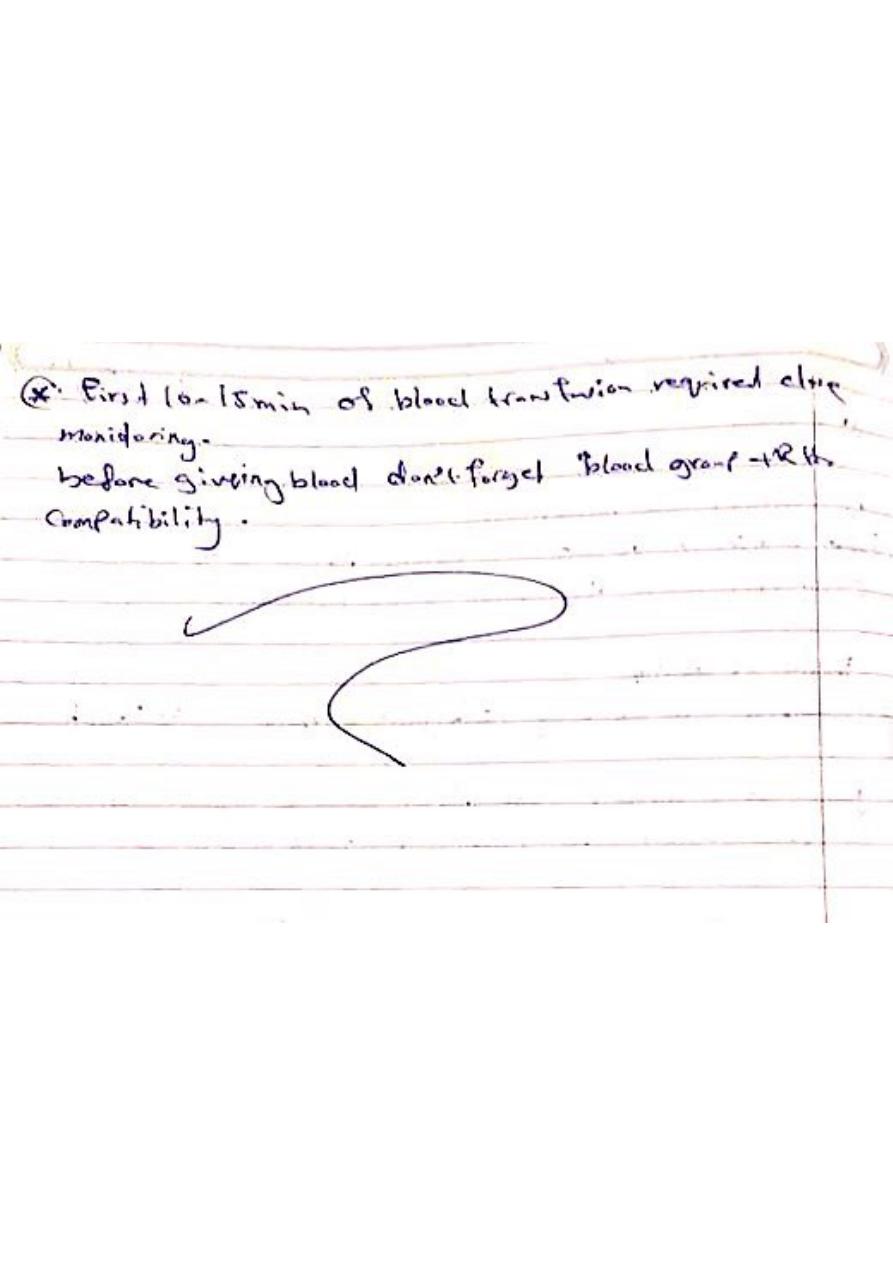 * First 10-15 min of blood transfusion required close
monitoring.
before giveing blood don't forget blood group + RH
Compatibility.